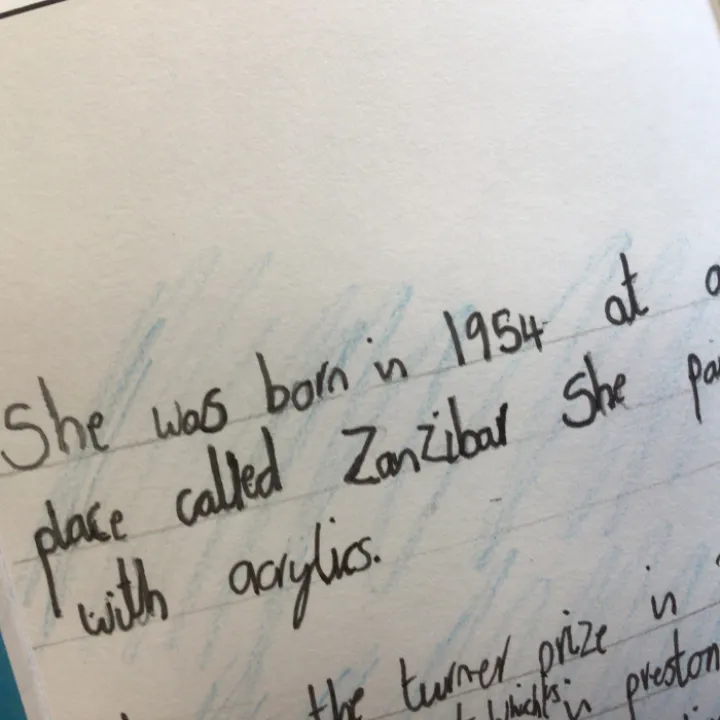 She was born in 1954 at a
place called Zanzibar She pai
with acrylics.
the turner prize in
which is in preston